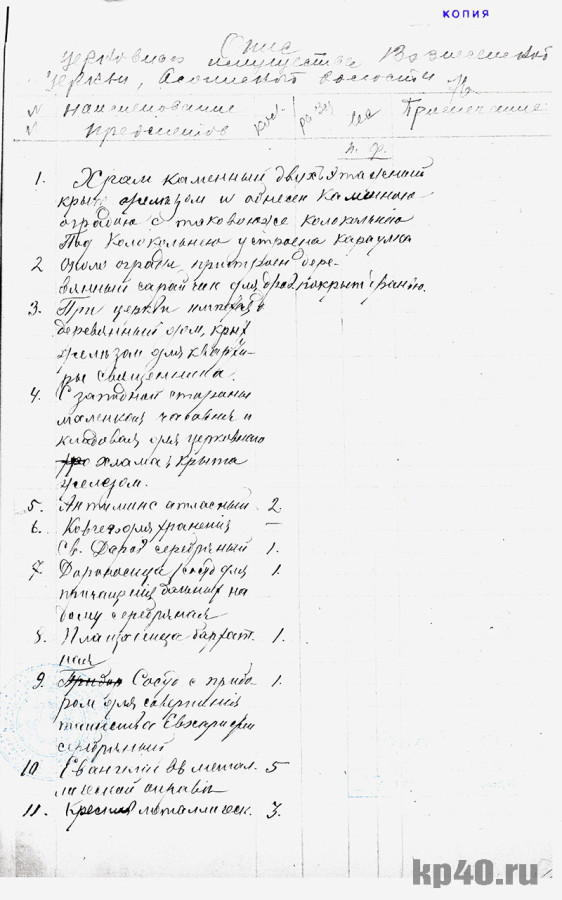 КОПИЯ
Опис
церковного имущества Вознесенской
церкви,           волости
№ наименование кол. ра                Примечание
№ предметов
п. ф.
1. Храм каменный двухъэтажный
крыт железом и обнесен каменною
оградою с таковоюже колокольнею
Под Колокольнею устроена караулка
2 Около ограды пристроен дере-
вянный сарайчик для дров покрыт
3. При церкви
деревянный дом, крыт
железом для кварти-
ры священника.
4. С западной стороны
маленькая часовня и
кладовая для церковного
хлама, крыта
железом.
5. Антиминс атласный 2
6. Ковчег для хранения —
Св. Даров серебряный 1.
7. Дароносица / сосуд для 1.
причащения больных на
дому серебряная
8. Плащаница бархат. 1.
ная
9. Прибор Сосуд с прибо 1.
ром для совершения
таинства Евхаристии
серебряный
10 Евангелий в метал. 5
лической оправе
11. Крестов металлическ. 3.
kp40.ru